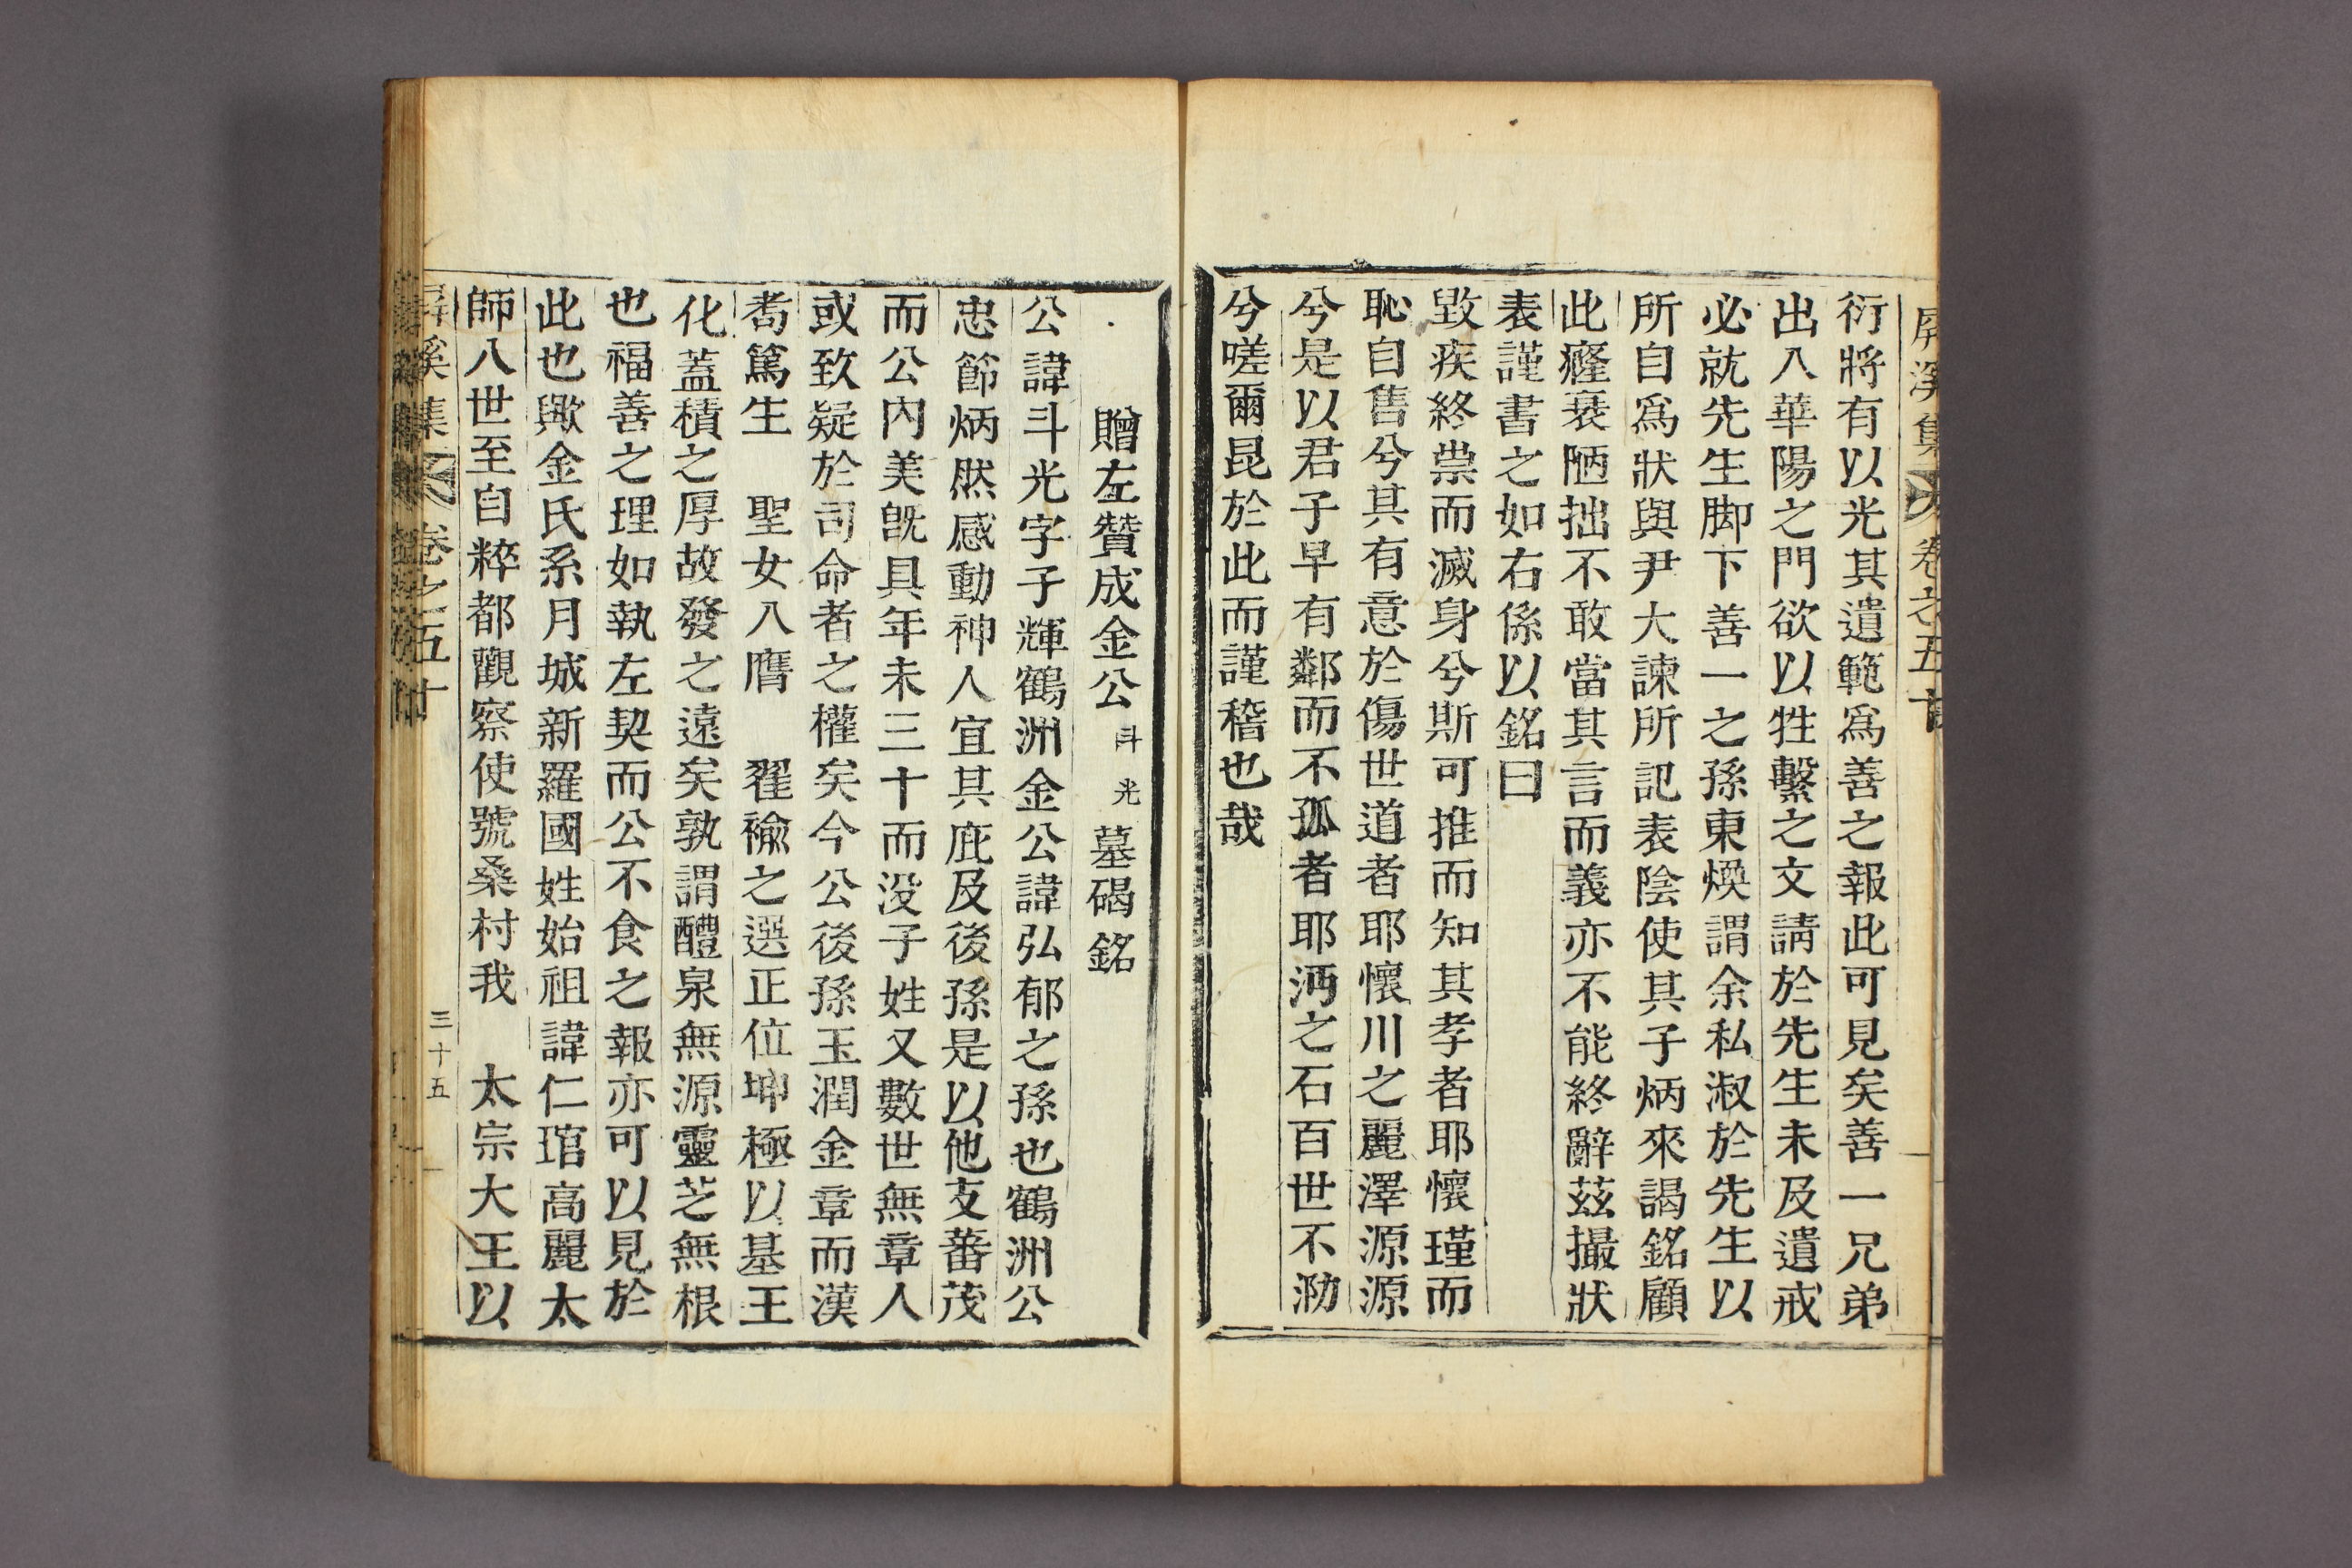 屛溪集 卷之五十
衍將有以光其遺範爲善之報此可見矣善一兄弟
出入華陽之門欲以牲繫之文請於先生未及遺戒
必就先生脚下善一之孫東煥謂余私淑於先生以
所自爲狀與尹大諫所記表陰使其子炳來謁銘顧
此癃衰陋拙不敢當其言而義亦不能終辭玆撮狀
表謹書之如右係以銘曰
毀疾終祟而滅身兮斯可推而知其孝者耶懷瑾而
恥自售兮其有意於傷世道者耶懷川之麗澤源源
兮是以君子早有鄰而不孤者耶沔之石百世不泐
兮嗟爾昆於此而謹稽也哉
贈左贊成金公斗光墓碣銘
公諱斗光字子輝鶴洲金公諱弘郁之孫也鶴洲公
忠節炳然感動神人宜其庇及後孫是以他支蕃茂
而公內美旣具年未三十而没子姓又數世無章人
或致疑於司命者之權矣今公後孫玉潤金章而漢
耇篤生 聖女入膺 翟褕之選正位坤極以基王
化蓋積之厚故發之遠矣孰謂醴泉無源靈芝無根
也福善之理如執左契而公不食之報亦可以見於
此也歟金氏系月城新羅國姓始祖諱仁琯高麗太
師八世至自粹都觀察使號桑村我 太宗大王以
屛溪集 卷之五十 三十五